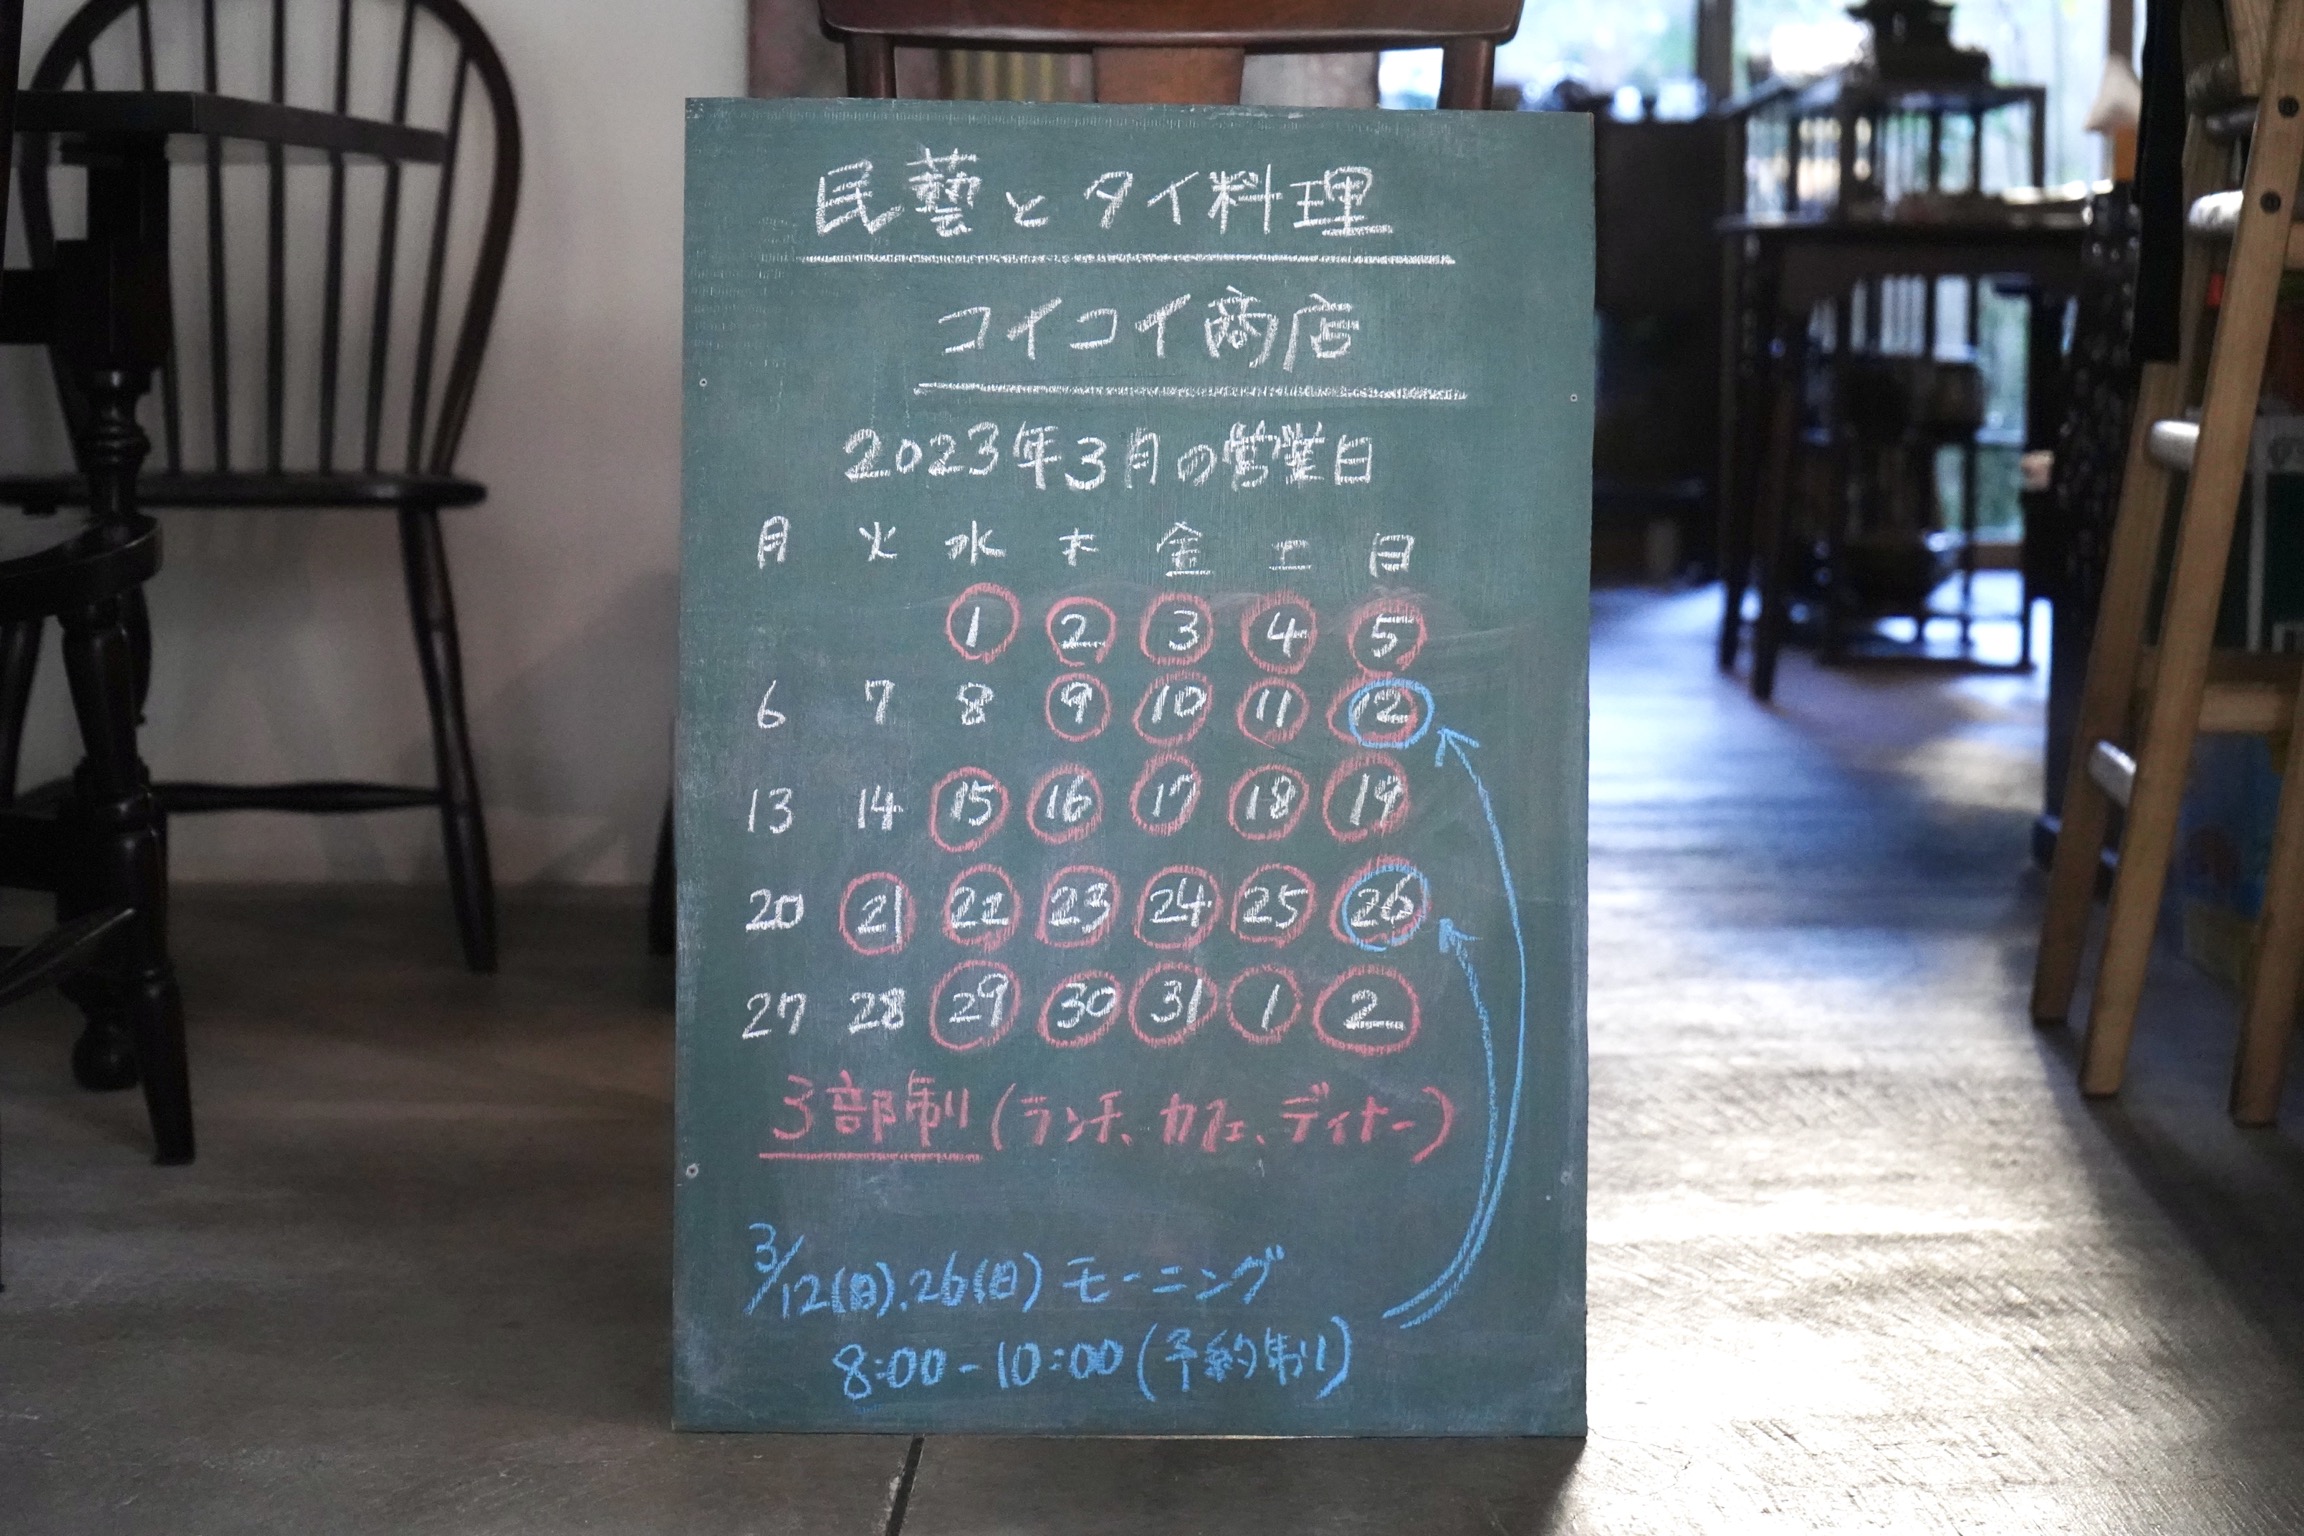 民藝とタイ料理
コイコイ商店
2023年3月の営業日
月 火 水 木 金 土 日
1 2 3 4 5
6 7 8 9 10 11 12
13 14 15 16 17 18 19
20 21 22 23 24 25 26
27 28 29 30 31 1 2
3部制(ランチ、カフェ、ディナー)
3/12(日).26(日)モーニング
8:00-10:00(予約制)